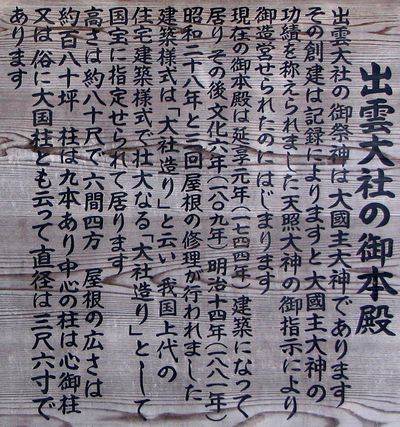 出雲大社の御本殿
出雲大社の御祭神は大國主大神であります
その創建は記録によりますと大國主大神の
功績を称えられました天照大神の御指示により
御造営せられたのにはじまります
現在の御本殿は延享元年(一七四四年)建築になって
居り その後文化六年(一八〇九年)明治十四年(一八八一年)
昭和二十八年と三回屋根の修理が行われました
建築様式は「大社造り」と云い 我国上代の
住宅建築様式で壮大なる「大社造り」として
国宝に指定せられて居ります
高さは約八十尺で 六間四方 屋根の広さは
約百八十坪 柱は九本あり中心の柱は心御柱
又は 俗に大国柱とも云って 直径は三尺六寸で
あります